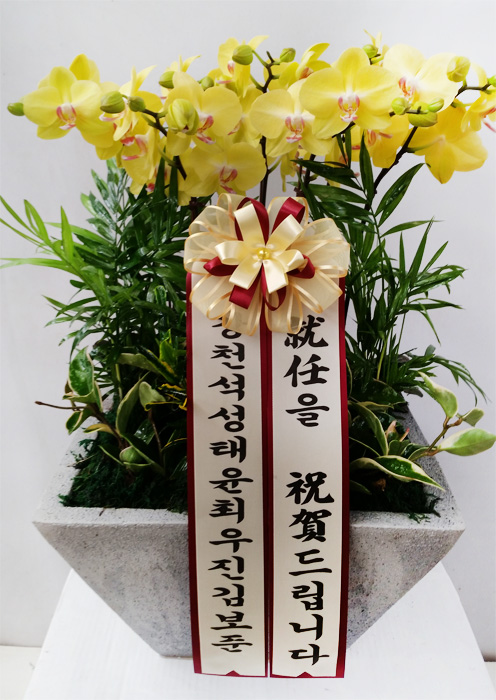 就任을 祝賀드립니다
천석성태윤최우진김보준